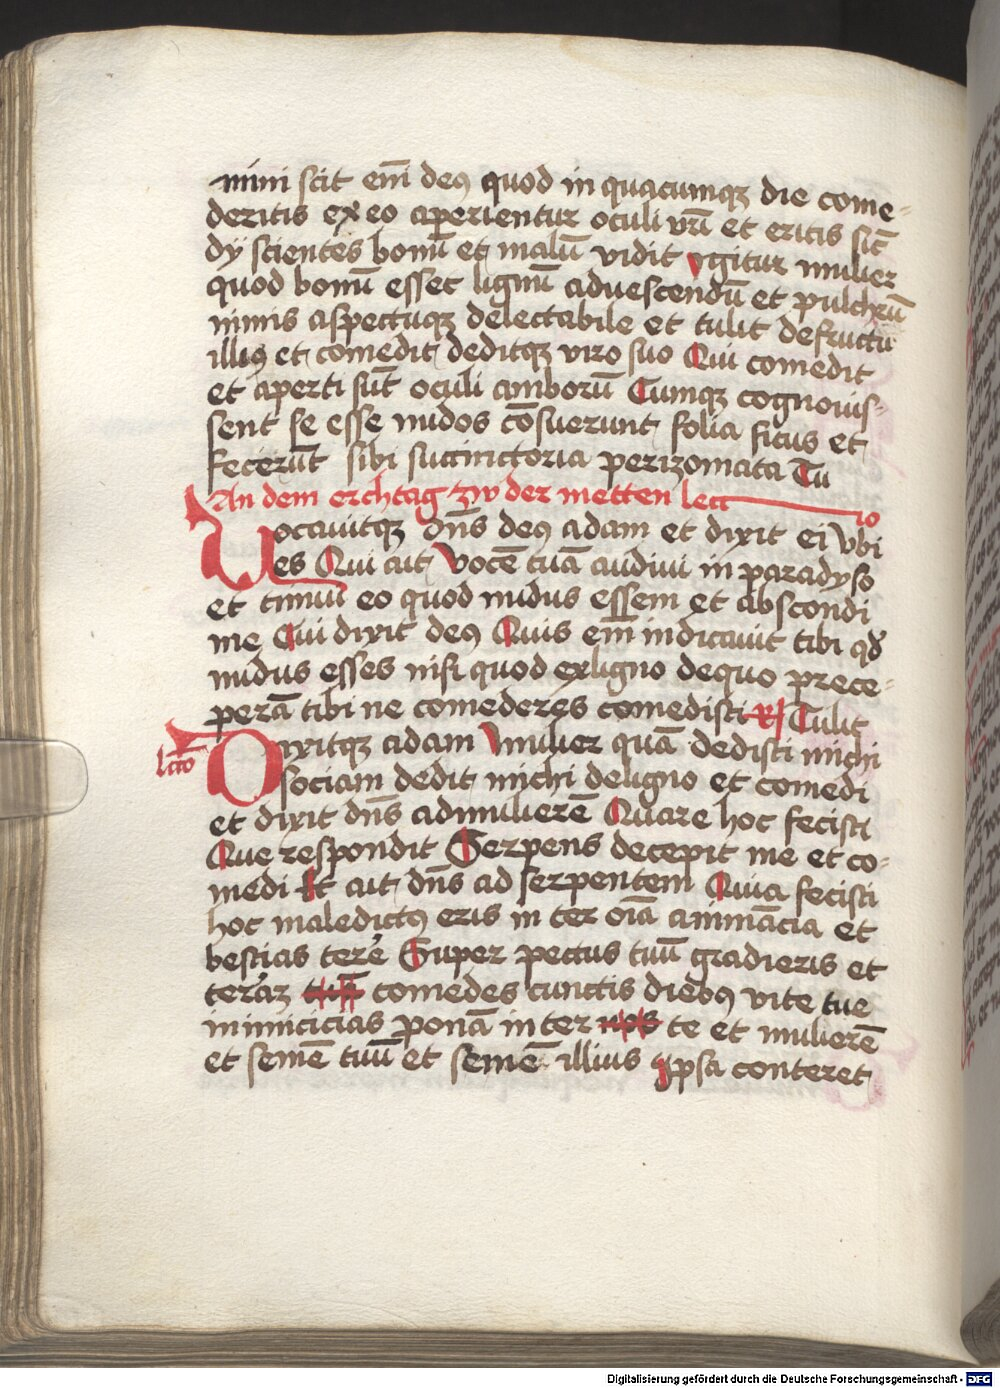 mini scit em̄ deꝰ quod in quacumqꝫ die come-
deritis ex eo aperientur oculi vr̄i et eritis sic̄
dy scientes bonū et malū vidit ygitur mulier
quod bonū esset lignū aduescendū et pulchrū
nimis aspectuqꝫ delectabile et tulit defructu
illiꝰ et comedit deditqꝫ viro suo Qui comedit
et aperti sūt oculi amborū Cumqꝫ cognouis-
sent se esse nudos cōsuerunt folia ficus et
fecerūt sibi succinctoria perizomata Tu
An dem erchtag zw der metten lectio
Vocauitqꝫ dn̄s deꝰ adam et dixit ei vbi
es Qui ait vocē tuā audiui in paradyso
et timui eo quod nudus essem et abscondi
me Cui dixit deꝰ Quis em̄ indicauit tibi qd̄
nudus esses nisi quod exligno dequo prece-
perā tibi ne comederes comedisti ℟ Tulit
lcio Dixitqꝫ adam mulier quā dedisti michi
sociam dedit michi deligno et comedi
et dixit dn̄s admulierē Quare hoc fecisti
Que respondit Serpens decepit me et co-
medi Et ait dn̄s ad serpentem Quia fecisti
hoc maledictꝰ eris in ter oīa animācia et
bestias terē Super pectus tuū gradieris et
teraz comedes cunctis diebꝰ vite tue
inimicicias ponā in ter te et mulierē
et semē tuū et semē illius ipsa conteret
Digitalisierung gefördert durch die Deutsche Forschungsgemeinschaft - DFG